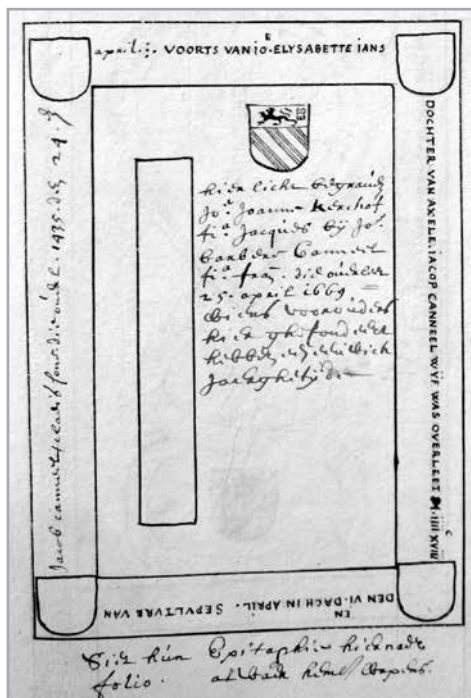 april. VOORTS VAN IOE. ELYSABETTE IANS
DOCHTER VAN AXELE. IACOP CANNEEL WYF WAS OVERLEET M. IIIIC XVII
EN
DEN VI. DACH IN APRIL. SEPULTURE VAN
Jacob canneel 1435. 24.
hier licht begraven
Joe. Joanne Kerchof
fia. Jacques bij Joe.
barbera Canneel
fia. fran. die overleet
25. april 1669
wiens voorouders
hier ghefondeert
hebben
Jaerghetijde
Siet hun Epitaphie hiernaer
folio. wapens.